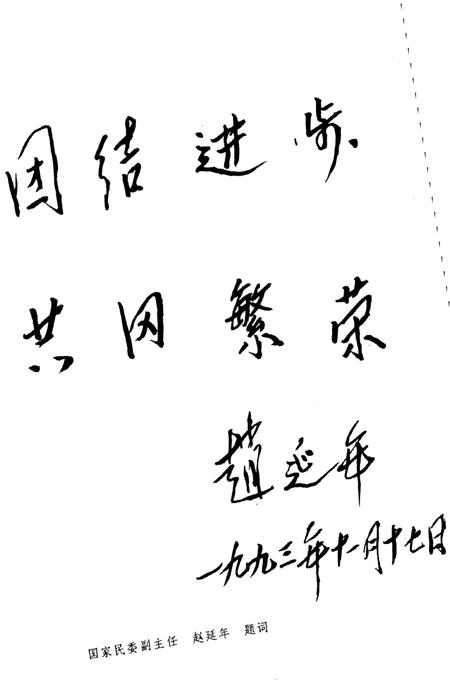 团结进步
共同繁荣
趙延年
一九九三年十一月十七日
国家民委副主任 赵延年 题词